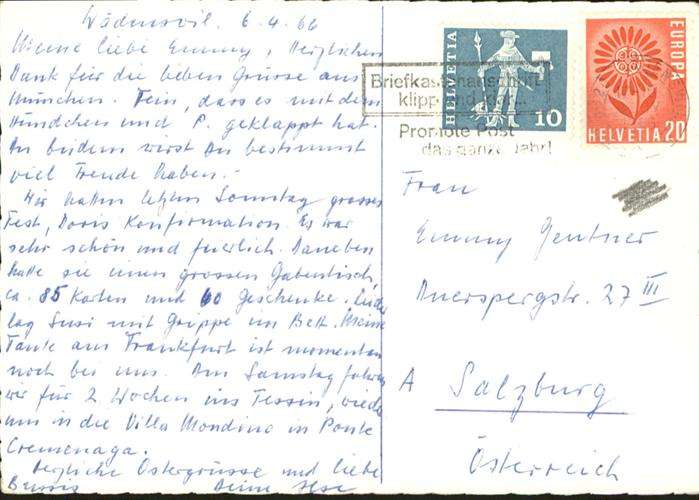 Wädenswil. 6.4.66
Meine liebe Emmy, Herzlichen
Dank für die lieben Grüsse aus
München. Fein, dass es mit dem
Hündchen und P. geklappt hat.
An beiden wirst Du bestimmt
viel Freude haben.-
Wir hatten letzten Sonntag grosses
Fest, Doris Konfirmation. Es war
sehr schön und feierlich. Daneben
hatte sie einen grossen Gabentisch,
ca. 85 Karten und 60 Geschenke. Leider
lag Susi mit Grippe im Bett. Meine
Tante aus Frankfurt ist momentan
noch bei uns. Am Samstag fahren
wir für 2 Wochen ins Tessin, wieder
in die Villa Mondino in Ponte
Cremenaga.
Herzliche Ostergrüsse und liebe
Bussis Deine Ilse
HELVETIA
10
EUROPA
HELVETIA 20
Briefkastenanschrift
klipp und klar...
Promote Post
das ganze Jahr!
Frau
Emmy Gentner
Auerspergstr. 27 III
A Salzburg
Österreich